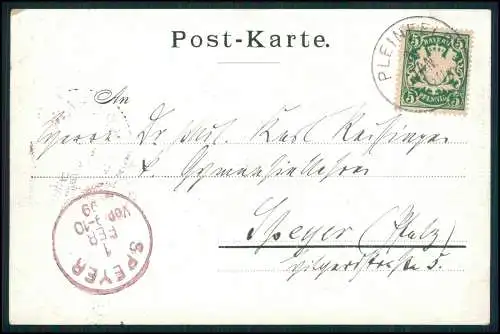 Post-Karte.
PLEINFE
BAYERN
5 5
5 5
PFENNIG
An
Herrn Dr phil. Karl Reisinger
k. Gymnasiallehrer
Speyer (Pfalz)
Hilgardstraße 5.
SPEYER
1
FEB
9-10
Vor.
99